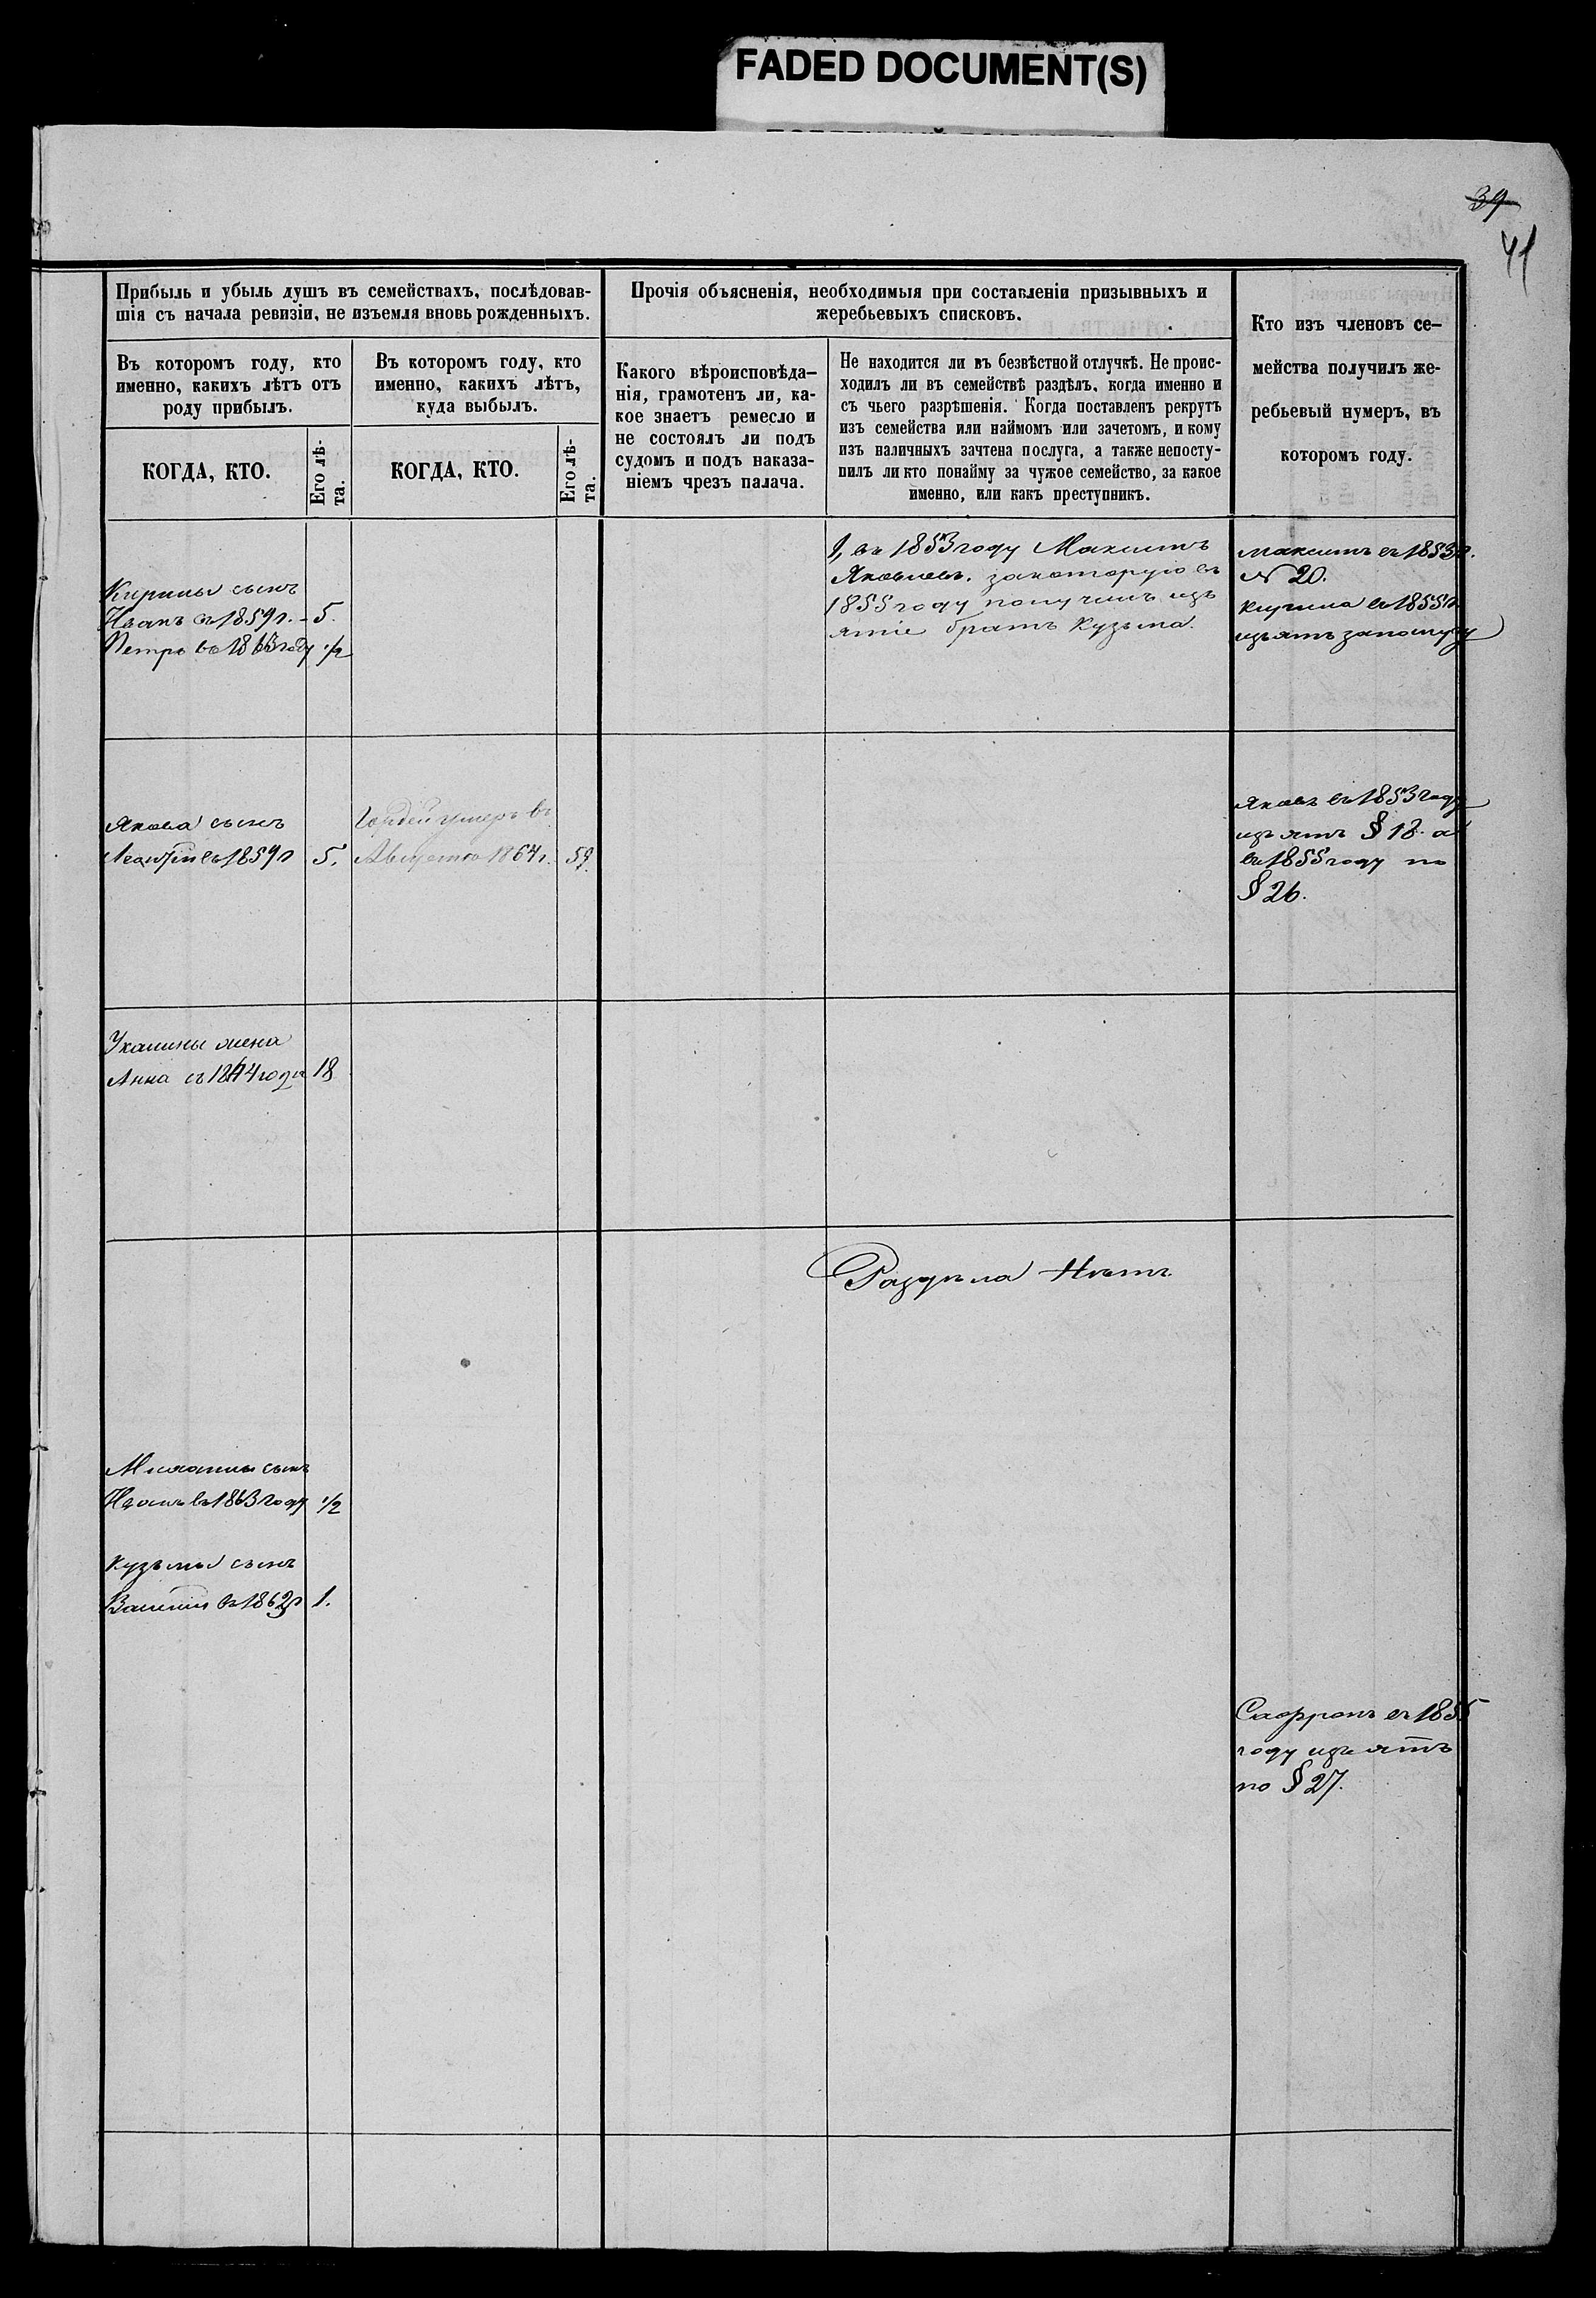 FADED DOCUMENT(S)
39
41
Прибыль и убыль душъ въ семействахъ, послѣдовав-
шія съ начала ревизіи, не изъемля вновь рожденныхъ.
Въ которомъ году, кто
именно, какихъ лѣтъ отъ
роду прибылъ.
КОГДА, КТО.
Его лѣ-
та.
Въ которомъ году, кто
именно, какихъ лѣтъ,
куда выбылъ.
КОГДА, КТО.
Его лѣ-
та.
Прочія объясненія, необходимыя при составленіи призывныхъ и
жеребьевыхъ списковъ.
Какого вѣроисповѣда-
нія, грамотенъ ли, ка-
кое знаетъ ремесло и
не состоялъ ли подъ
судомъ и подъ наказа-
ніемъ чрезъ палача.
Не находится ли въ безвѣстной отлучкѣ. Не проис-
ходилъ ли въ семействѣ раздѣлъ, когда именно и
съ чьего разрѣшенія. Когда поставленъ рекрутъ
изъ семейства или наймомъ или зачетомъ, и кому
изъ наличныхъ зачтена послуга, а также непосту-
пилъ ли кто понайму за чужое семейство, за какое
именно, или какъ преступникъ.
Кто изъ членовъ се-
мейства получилъ же-
ребьевый нумеръ, въ
которомъ году.
сынъ
Иванъ въ 1859г. - 5.
Петръ въ году 1/2
1, въ 1853 году Максимъ
Яковлевъ. закоторую въ
1855 году получилъ изъ
ятіе братъ Кузьма.
Максимъ въ 1853г.
№ 20.
въ 1855г.
изъятъ запослугу
Якова сынъ
въ 1859г 5.
Гордей умеръ въ
Августѣ 1864г. 59.
Яковъ въ 1853 году
изъятъ § 18. а
въ 1855 году по
§ 26.
жена
Анна съ года 18
Раздѣла Нѣтъ.
сынъ
Иванъ въ 1863 году 1/2
Кузьмы сынъ
Василій въ 1862г 1.
Сафронъ въ 1855
году изъятъ
по § 27.